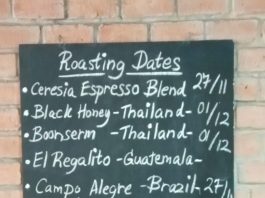 Roasting Dates
• Ceresia Espresso Blend 27/11
• Black Honey - Thailand - 01/12
• Boonserm - Thailand - 01/12
• El Regalito - Guatemala -
• Campo Alegre - Brazil 27/11